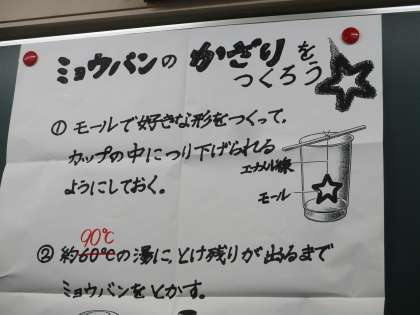 ミョウバンの かざりを
つくろう
① モールで好きな形をつくって、
カップの中につり下げられる
ようにしておく。
エナメル線
モール
90℃
② 約60℃の湯に、とけ残りが出るまで
ミョウバンをとかす。